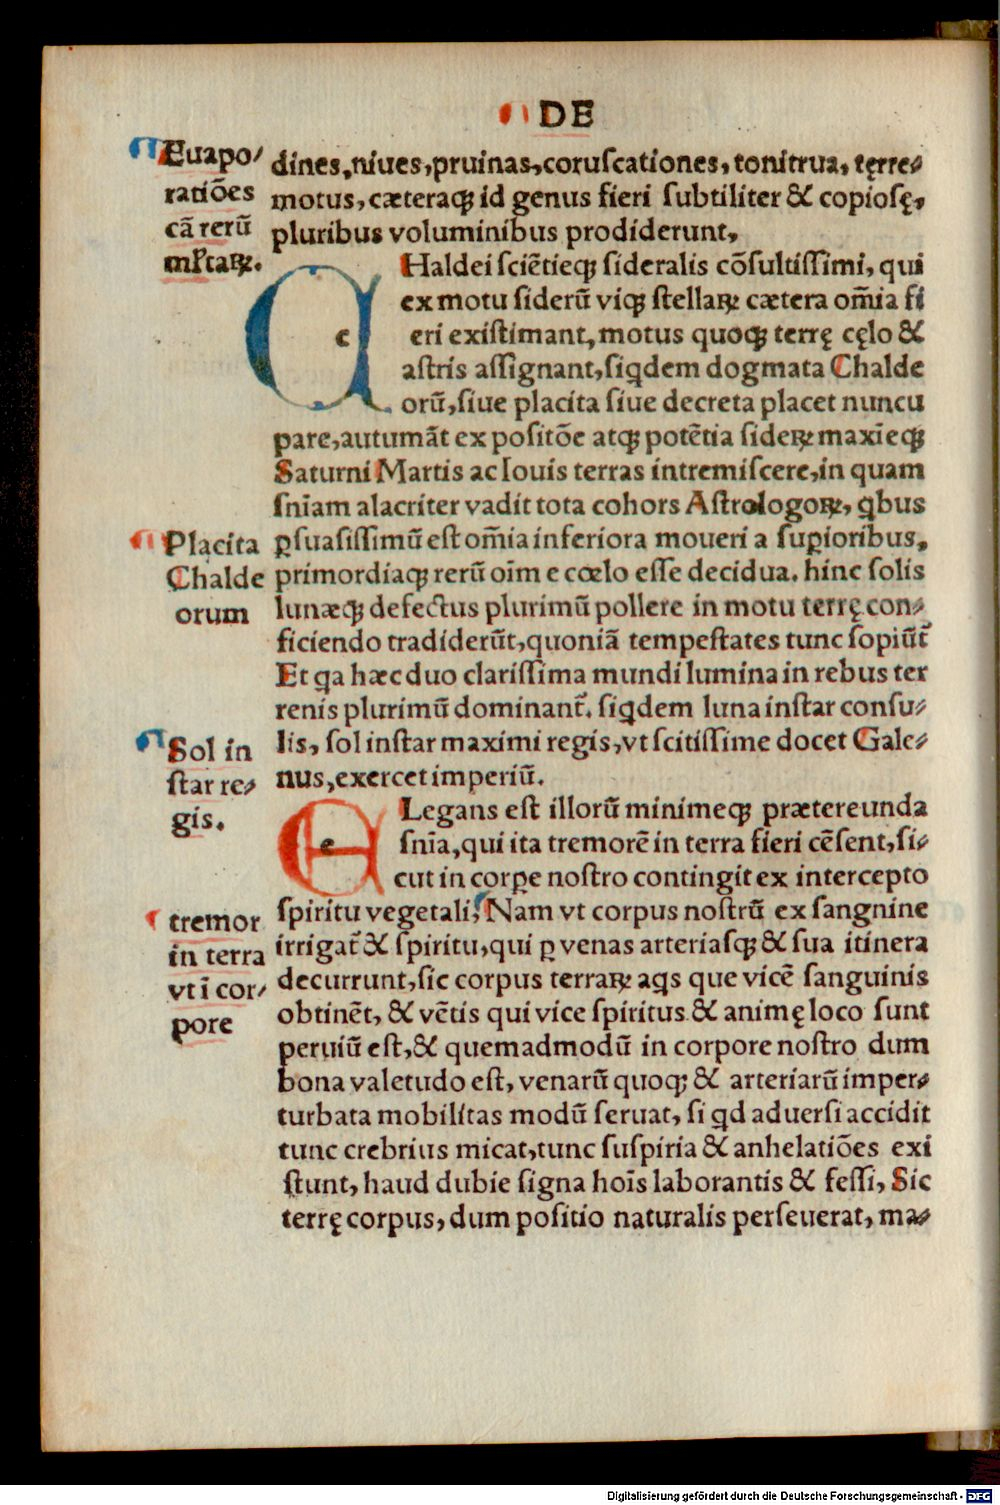 DE
Euapo⸗
ratiões
cā rerū
mῑtaꝝ.
dines, niues, pruinas, coruſcationes, tonitrua, tęrre⸗
motus, cæteraqꝫ id genus fieri ſubtiliter & copioſę,
pluribus voluminibus prodiderunt,
CHaldei ſciẽtieqꝫ ſideralis cõſultiſſimi, qui
ex motu ſiderū viqꝫ ſtellaꝝ cætera om̃ia fi
eri exiſtimant, motus quoqꝫ terrę cęlo &
aſtris aſſignant, ſiꝗdem dogmata Chalde
orū, ſiue placita ſiue decreta placet nuncu
pare, autumãt ex poſitõe atqꝫ potẽtia ſideꝝ maxīeqꝫ
Saturni Martis ac Iouis terras intremiſcere, in quam
ſn̄iam alacriter vadit tota cohors Aſtrologoꝝ, ꝗbus
Placita
Chalde
orum
ꝑſuaſiſſimū eſt om̃ia inferiora moueri a ſuꝑioribus,
primordiaqꝫ rerū oīm e cœlo eſſe decidua. hinc ſolis
lunæqꝫ defectus plurimū pollere in motu terrę con⸗
ficiendo tradiderūt, quoniã tempeſtates tunc ſopiūt᷑
Et ꝗa hæc duo clariſſima mundi lumina in rebus ter
renis plurimū dominant᷑. ſiꝗdem luna inſtar conſu⸗
Sol in
ſtar re⸗
gis.
lis, ſol inſtar maximi regis, vt ſcitiſſime docet Gale⸗
nus, exercet imperiū.
ELegans eſt illorū minimeqꝫ prætereunda
ſn̄ia, qui ita tremorẽ in terra fieri cẽſent, ſi⸗
cut in corꝑe noſtro contingit ex intercepto
tremor
in terra
vt ī cor⸗
pore
ſpiritu vegetali, Nam vt corpus noſtrū ex ſangnine
irrigat᷑ & ſpiritu, qui ꝑ venas arteriaſqꝫ & ſua itinera
decurrunt, ſic corpus terraꝝ aꝗs que vicẽ ſanguinis
obtinẽt, & vẽtis qui vice ſpiritus & animę loco ſunt
peruiū eſt, & quemadmodū in corpore noſtro dum
bona valetudo eſt, venarū quoqꝫ & arteriarū imper⸗
turbata mobilitas modū ſeruat, ſi ꝗd aduerſi accidit
tunc crebrius micat, tunc ſuſpiria & anhelatiões exi
ſtunt, haud dubie ſigna hoīs laborantis & feſſi, Sic
terrę corpus, dum poſitio naturalis perſeuerat, ma⸗
Digitalisierung gefördert durch die Deutsche Forschungsgemeinschaft - DFG